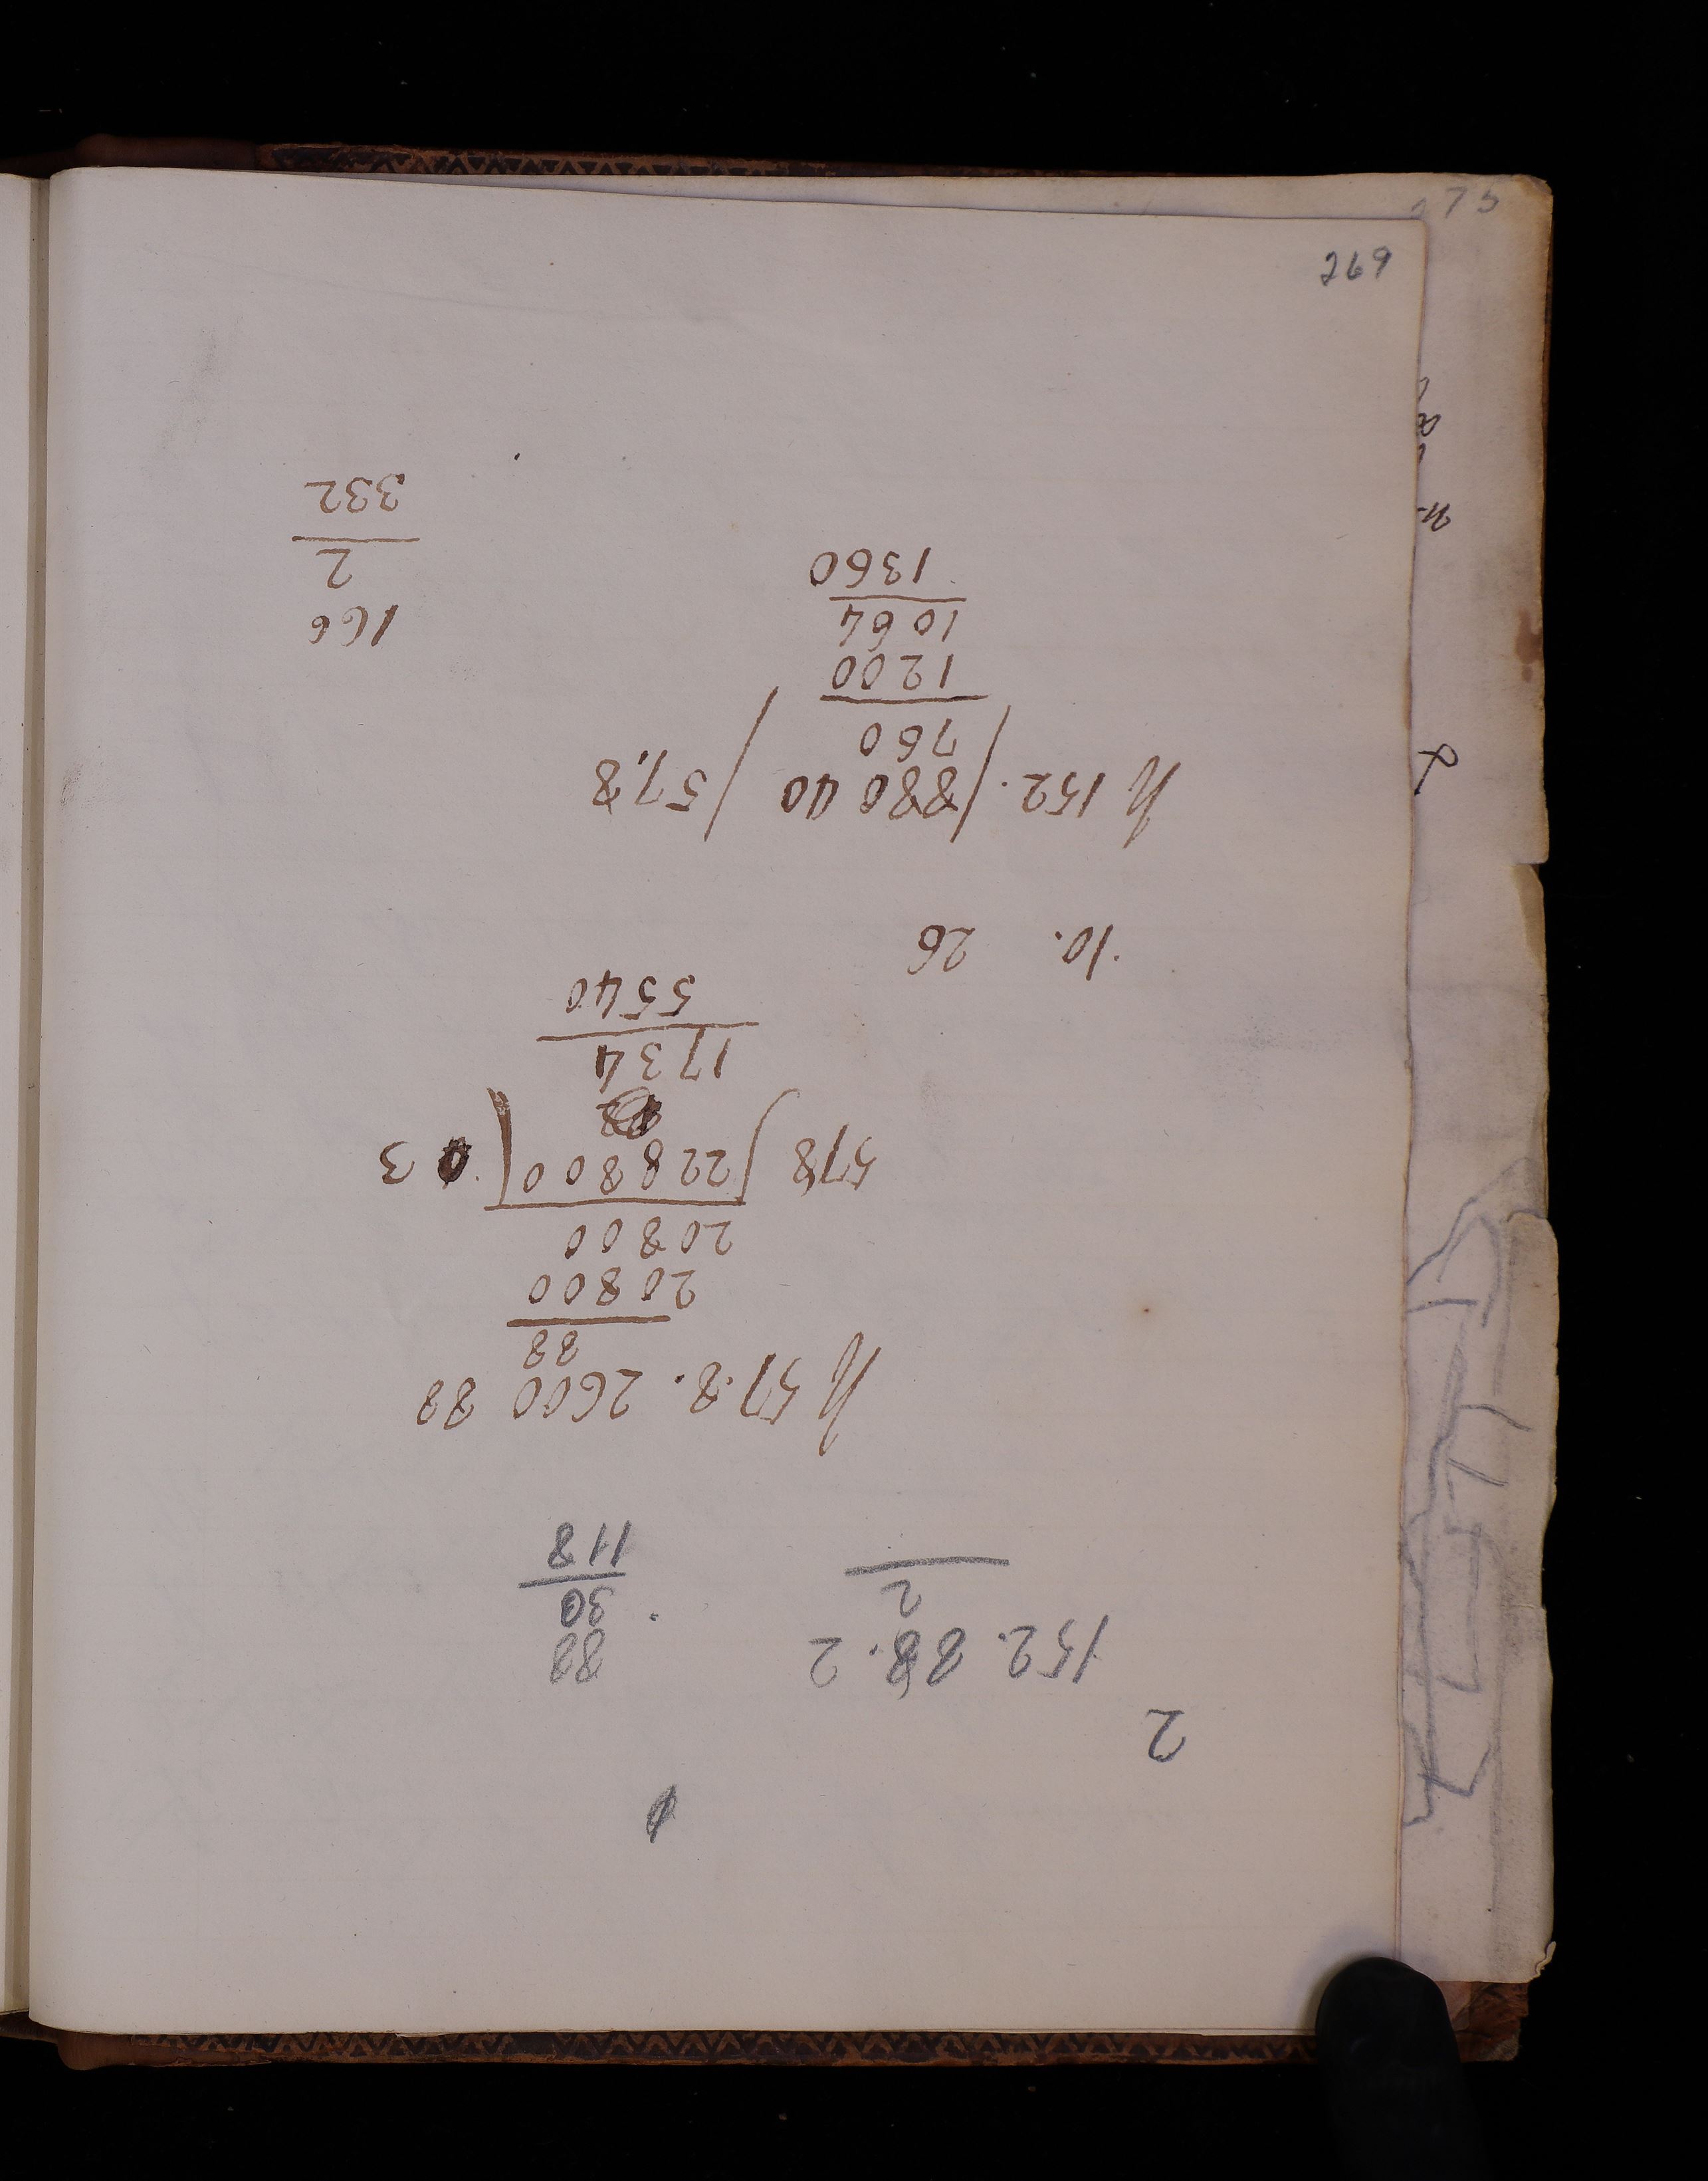 269
75
2
152. 88. 2
2
88
30
118
57.8. 2600 88
88
20800
20800
578 / 228800 ( 3
1734
5540
10. 26
152. / 88040 / 57,8
760
1200
1064
1360
166
2
332